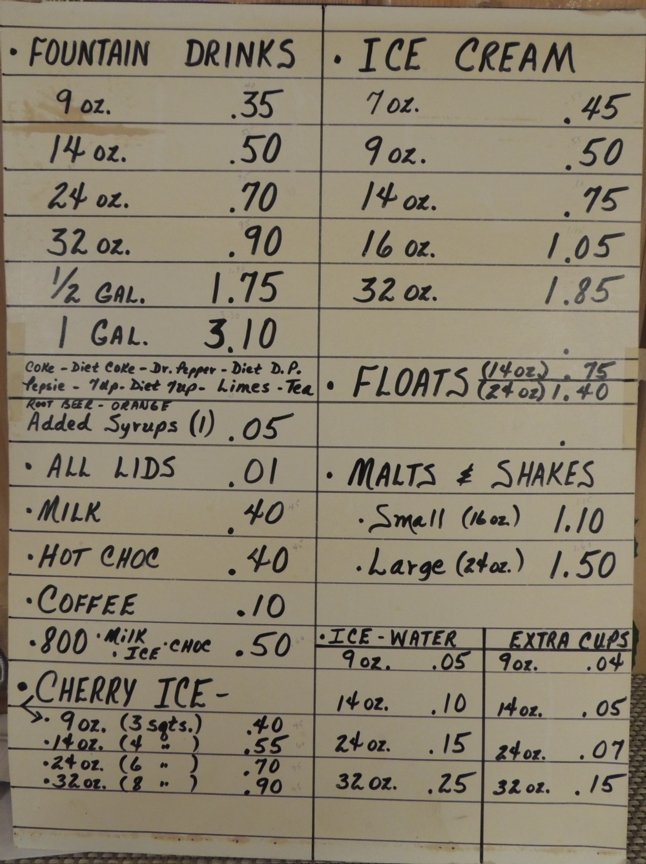 · FOUNTAIN DRINKS
9 oz. .35
14 oz. .50
24 oz. .70
32 oz. .90
1/2 GAL. 1.75
1 GAL. 3.10
Coke - Diet Coke - Dr. Pepper - Diet D.P.
Pepsie - 7up - Diet 7up - Limes - Tea
ROOT BEER - ORANGE
Added Syrups (1) .05
· ALL LIDS .01
· MILK .40
· HOT CHOC .40
· COFFEE .10
· 800 · Milk · ICE · CHOC .50
· CHERRY ICE -
· 9 oz. (3 sqts.) .40
· 14 oz. (4 " ) .55
· 24 oz. (6 " ) .70
· 32 oz. (8 " ) .90
· ICE CREAM
7 oz. .45
9 oz. .50
14 oz. .75
16 oz. 1.05
32 oz. 1.85
· FLOATS (14 oz) .75
(24 oz) 1.40
· MALTS & SHAKES
· Small (16 oz.) 1.10
· Large (24 oz.) 1.50
· ICE-WATER
9 oz. .05
14 oz. .10
24 oz. .15
32 oz. .25
EXTRA CUPS
9 oz. .04
14 oz. .05
24 oz. .07
32 oz. .15